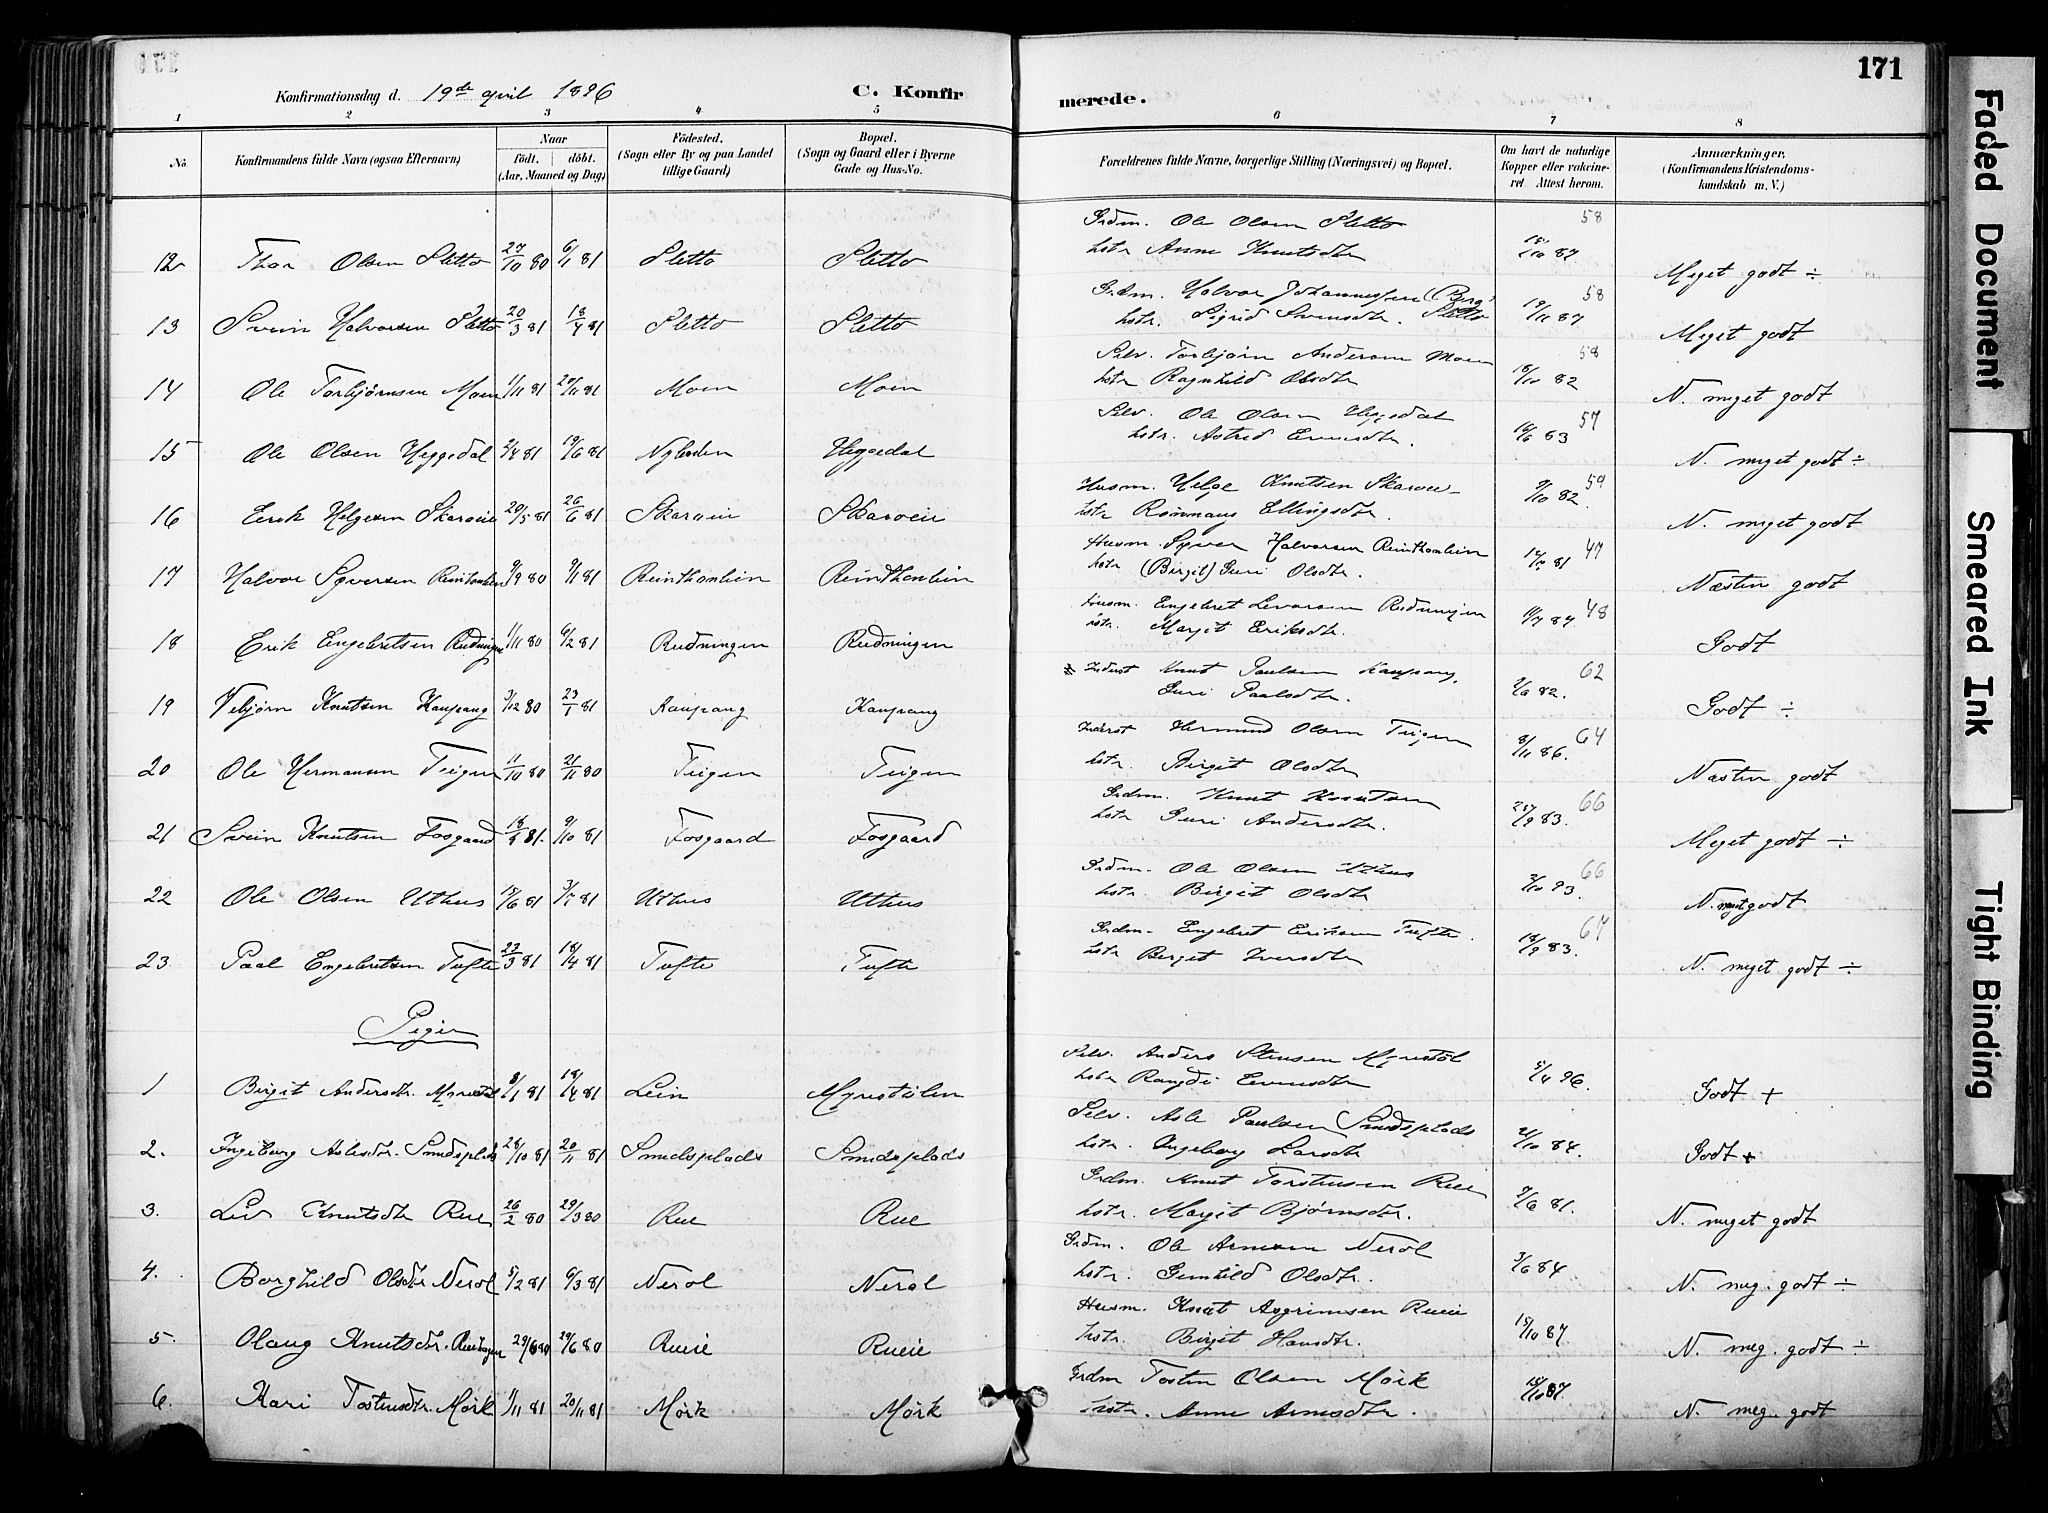 171
Konfirmationsdag d. 19de april 1896
C. Konfirmerede.
1 2 3 4 5 6 7 8
No.
Konfirmandens fulde Navn (ogsaa Efternavn)
Naar
födt. döbt.
(Aar, Maaned og Dag)
Födested.
(Sogn eller By og paa Landet
tillige Gaard)
Bopæl.
(Sogn og Gaard eller i Byerne
Gade og Hus-No.
Forældrenes fulde Navne, borgerlige Stilling (Næringsvei) og Bopæl.
Om havt de naturlige
Kopper eller vakcine-
ret Attest herom.
Anmærkninger,
(Konfirmandens Kristendoms-
kundskab m. V.)
Grdm. Ole Olsen Sletto 58
12 Thor Olsen Sletto 27/10 80 6/1 81 Sletto Sletto hstr Anne Knutsdtr Meget godt ÷
Grdm. Halvor Johannessen (Berg) 58
13 Svein Halvorsen Sletto 20/3 81 18/4 81 Sletto Sletto hstr. Sigrid Svensdtr. Sletto 19/11 87 Meget godt
Selv. Torbjørn Andersen Moen 58
14 Ole Torbjørnsen Moen 1/11 81 20/11 81 Moen Moen hstr Ragnhild Olsdtr 18/10 82 N. meget godt
Selv. Ole Olsen Heggedal 57
15 Ole Olsen Heggedal 2/4 81 19/6 81 Heggedal hstr. Astrid Evensdtr. N. meget godt ÷
Husm. Helge Knutsen 59
16 Erik Helgesen Skaroeie 20/5 81 26/6 81 Skaroeie Skaroeie hstr Ellingsdtr. 9/10 82. N. meget godt
Husm. Syver Halvorsen Reinthonlien 47
17 Halvor Syversen Reintonlien 9/9 80 9/1 81 Reinthonlien Reindthonlien hstr (Birgit) Guri Olsdtr. Næsten godt
Husm. Engebret Rudningen 48
18 Erik Engebretsen Rudningen 1/11 80 6/2 81 Rudningen Rudningen hstr. Margit Eriksdtr. Godt
Inderst Knut Paulsen Kaupang. 62
19 Vebjørn Knutsen Kaupang 3/12 80 23/1 81 Kaupang Kaupang Guri Paalsdtr. 2/6 82. Godt ÷
Inderst Hermund Olsen Teigen 64
20 Ole Hermansen Teigen 11/10 80 21/11 80 Teigen Teigen hstr. Birgit Olsdtr 8/11 86. Næsten godt
Grdm. Knut Knutsen 66
21 Svein Knutsen Fosgaard 81. 9/10 81 Fosgaard Fosgaard hstr Guri Andersdtr. Meget godt ÷
Grdm. Ole Olsen Uthus 66
22 Ole Olsen Uthus 81 Uthus Uthus hstr. Birgit Olsdtr N. meget godt
Grdm. Engebret Eriksen Tufte. 67
23. Paal Engebretsen Tufte 23/3 81 18/4 81 Tufte Tufte hstr Berget Iversdtr 18/9 83. N. meget godt ÷
Piger
Selv. Anders Stensen Myrestöl
1 Birgit Andersdtr. Myrestöl 81 18/4 81 Lein Myrestölen hstr Rangdi Evensdtr 5/4 96. Godt +
Selv. Asle Paulsen Smedsplads
2. Ingeborg Aslesdtr. Smedsplads 28/10 81 20/11 81 Smedsplads Smedsplads hstr. Ingeborg Larsdtr 2/10 84. Godt +
Grdm. Knut Torstensen Rue
3. Liv Knutsdtr Rue 26/2 80 29/3 80 Rue Rue hstr. Margit Bjørnsdtr. 9/6 81. N. meget godt
Grdm. Ole Arnesen Nerol
4. Borghild Olsdtr Nerol 5/2 81 6/3 81 Nerol Nerol hstr. Gunhild Olsdtr. 3/6 84 N. meg. godt ÷
Husm. Knut Asgrimsen Rueie
5. Olaug Knutsdtr. 80 29/6 80 Rueie Rueie hstr. Birgit Hansdtr. 15/10 87. N. meg. godt ÷
Grdm Tosten Olsen Mörk
6. Kari Tostensdtr. Mörk 1/11 81 20/11 81 Mörk Mörk hstr. Anne Arnesdtr. 18/10 87. N. meg. godt
Faded Document
Smeared Ink
Tight Binding